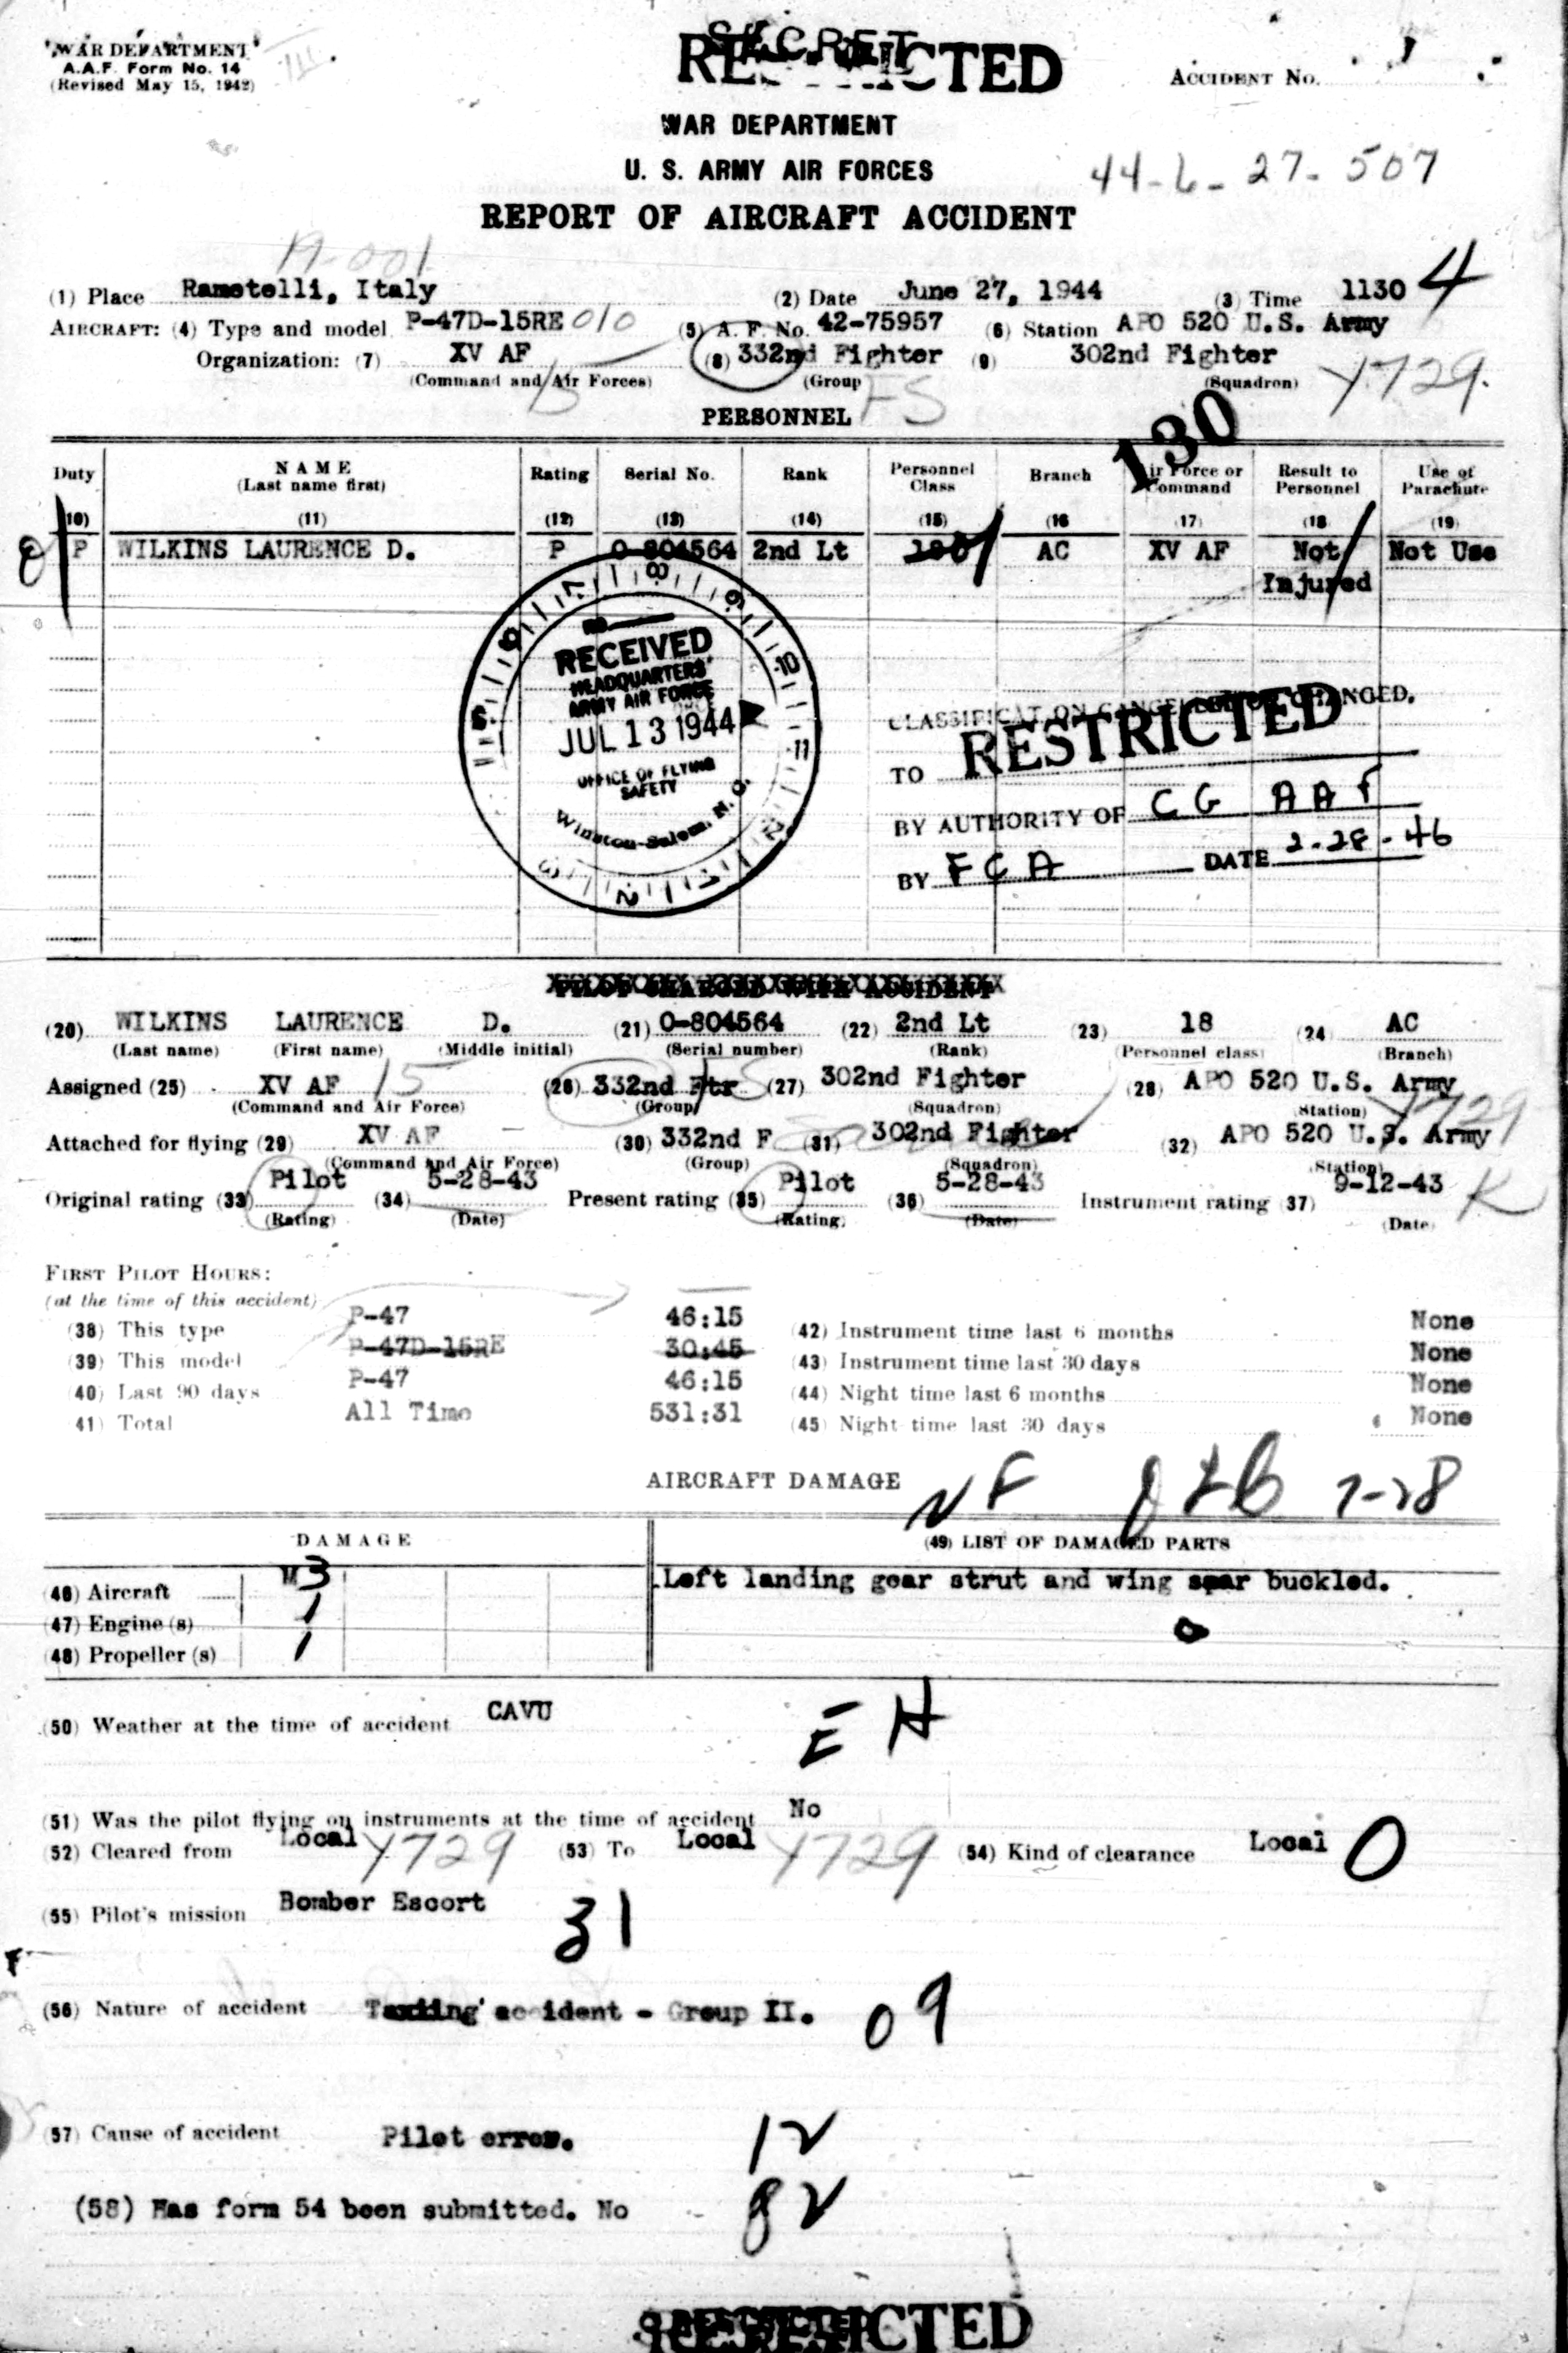 WAR DEPARTMENT
A.A.F. Form No. 14
(Revised May 15, 1942)
SECRET
RESTRICTED
ACCIDENT No.
WAR DEPARTMENT
U. S. ARMY AIR FORCES
44-6-27-507
REPORT OF AIRCRAFT ACCIDENT
(1) Place Ramotelli, Italy (2) Date June 27, 1944 (3) Time 1130 4
AIRCRAFT: (4) Type and model P-47D-15RE 010 (5) A. F. No. 42-75957 (6) Station APO 520 U.S. Army
Organization: (7) XV AF (8) 332nd Fighter (9) 302nd Fighter
(Command and Air Forces) (Group (Squadron) Y729.
15 FS
PERSONNEL
130
Duty NAME (Last name first) Rating Serial No. Rank Personnel Class Branch Air Force or Command Result to Personnel Use of Parachute
(10) (11) (12) (13) (14) (15) (16 (17) (18 (19)
P WILKINS LAURENCE D. P O-804564 2nd Lt AC XV AF Not Injured Not Use
RECEIVED
HEADQUARTERS
ARMY AIR FORCE
JUL 13 1944
OFFICE OF FLYING
SAFETY
Winston-Salem, N. C.
CLASSIFICATION CANCELLED OR CHANGED.
TO RESTRICTED
BY AUTHORITY OF CG AAF
BY FCA DATE 2-28-46
PILOT CHARGED WITH ACCIDENT
(20) WILKINS LAURENCE D. (21) O-804564 (22) 2nd Lt (23) 18 (24) AC
(Last name) (First name) (Middle initial) (Serial number) (Rank) (Personnel class) (Branch)
Assigned (25) XV AF 15 (26) 332nd Ftr (27) 302nd Fighter (28) APO 520 U.S. Army
(Command and Air Force) (Group) (Squadron) (Station) Y729
Attached for flying (29) XV AF (30) 332nd F (31) 302nd Fighter (32) APO 520 U.S. Army
(Command and Air Force) (Group) (Squadron) (Station)
Original rating (33) Pilot (34) 5-28-43 Present rating (35) Pilot (36) 5-28-43 Instrument rating (37) 9-12-43 K
(Rating) (Date) (Rating) (Date) (Date)
FIRST PILOT HOURS:
(at the time of this accident)
(38) This type P-47 46:15 (42) Instrument time last 6 months None
(39) This model P-47D-15RE 30:45 (43) Instrument time last 30 days None
(40) Last 90 days P-47 46:15 (44) Night time last 6 months None
(41) Total All Time 531:31 (45) Night time last 30 days None
AIRCRAFT DAMAGE
NF 7-28
DAMAGE (49) LIST OF DAMAGED PARTS
(46) Aircraft M 3 Left landing gear strut and wing spar buckled.
(47) Engine (s) 1
(48) Propeller (s) 1
(50) Weather at the time of accident CAVU
E H
(51) Was the pilot flying on instruments at the time of accident No
(52) Cleared from Local Y729 (53) To Local Y729 (54) Kind of clearance Local O
(55) Pilot's mission Bomber Escort
31
(56) Nature of accident Taxiing accident - Group II. 09
(57) Cause of accident Pilot error. 12
(58) Has form 54 been submitted. No 82
RESTRICTED